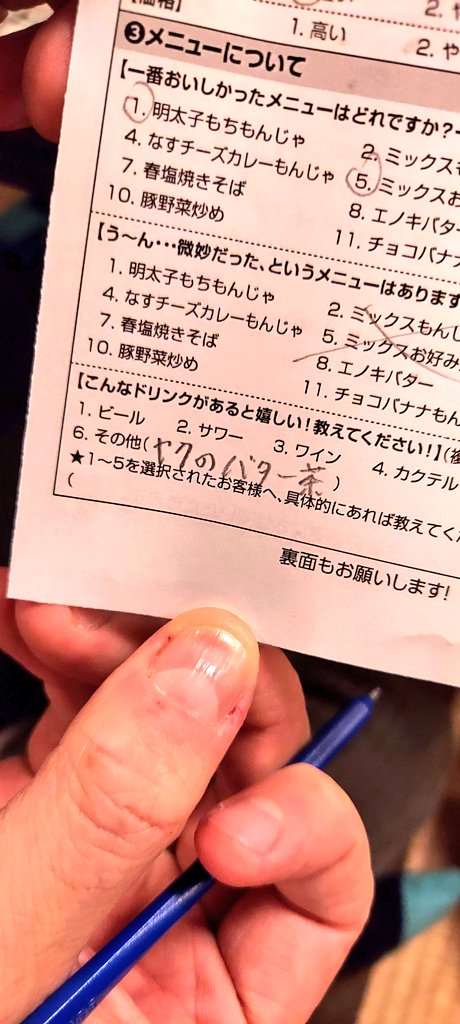 【価格】
1. 高い
2. や
❸メニューについて
【一番おいしかったメニューはどれですか?
1. 明太子もちもんじゃ
2. ミックスも
4. なすチーズカレーもんじゃ
5. ミックスお
7. 春塩焼きそば
8. エノキバター
10. 豚野菜炒め
11. チョコバナナ
【う〜ん・・・微妙だった、というメニューはあります
1. 明太子もちもんじゃ
2. ミックスもんじ
4. なすチーズカレーもんじゃ
5. ミックスお好み
7. 春塩焼きそば
8. エノキバター
10. 豚野菜炒め
11. チョコバナナもん
【こんなドリンクがあると嬉しい!教えてください!】(複
1. ビール 2. サワー 3. ワイン 4. カクテル
6. その他(ヤクのバター茶)
★1〜5を選択されたお客様へ、具体的にあれば教えてくだ
(
裏面もお願いします!